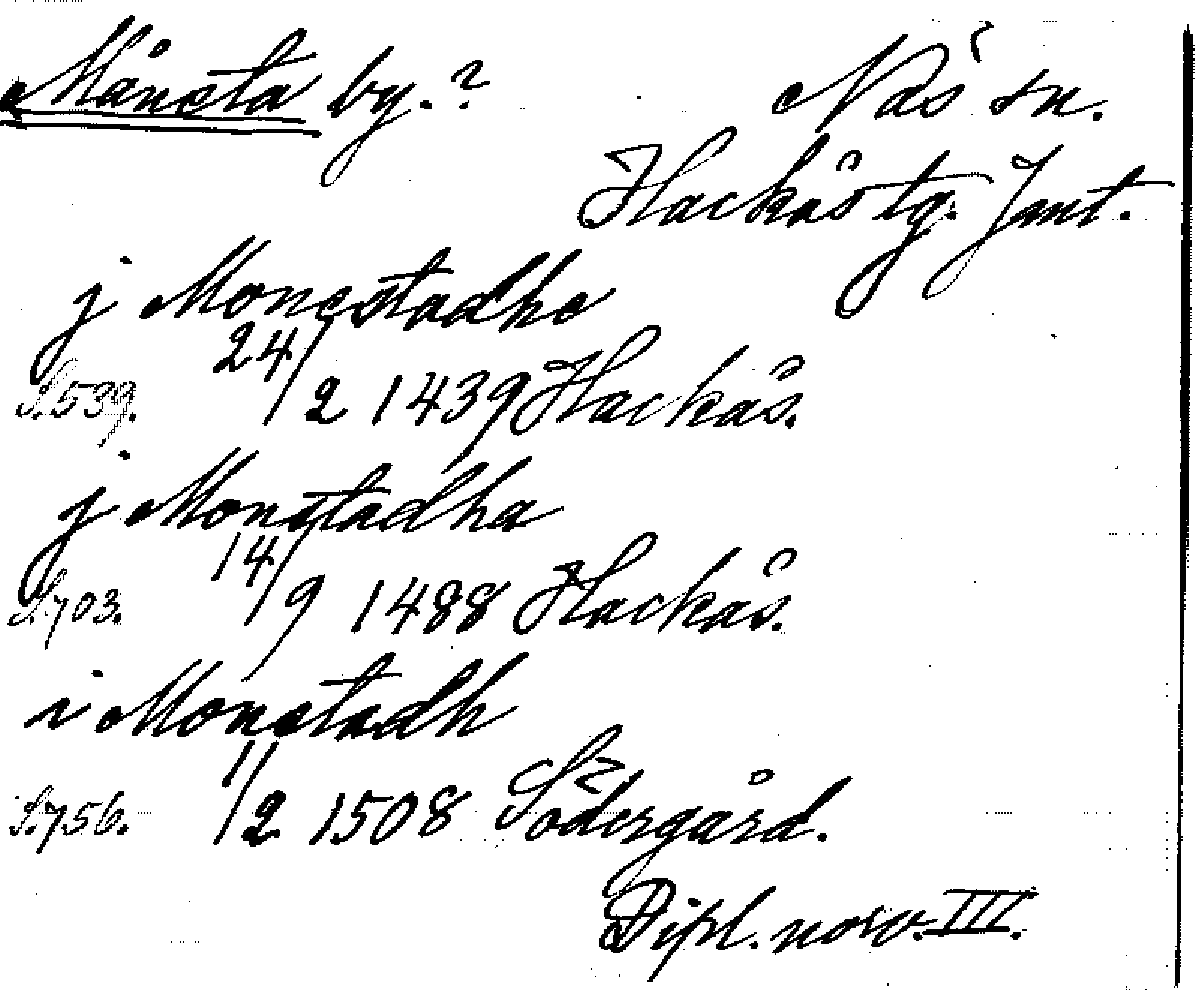 Månsta by.? Näs sn.
Hackås tg. Jmt.
j Monestadhe
S. 539. 24/2 1439 Hackås.
j Monstadha
S. 703. 14/9 1488 Hackås.
i Monstadh
S. 756. 11/2 1508 Södergård.
Dipl. norv. III.